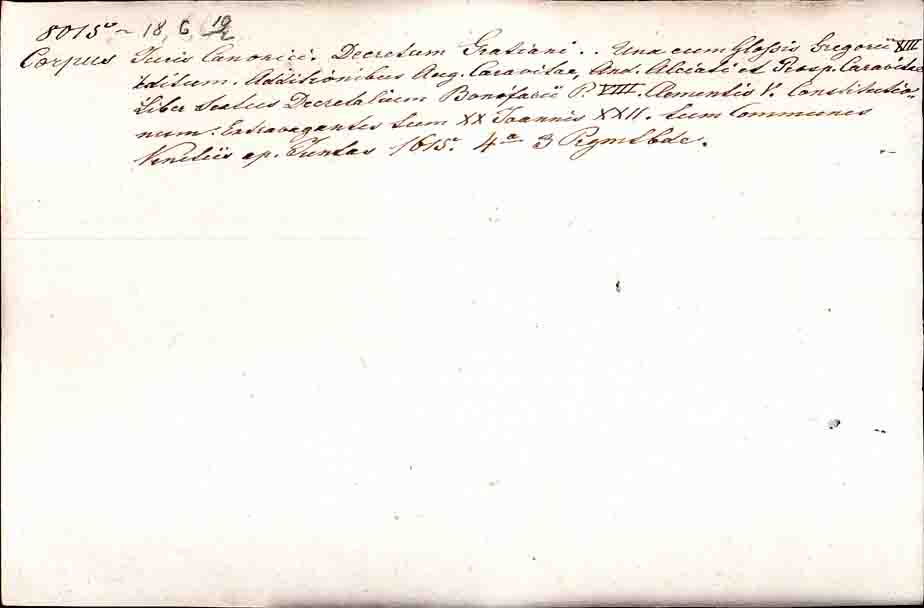 8015 ~ 18, 6, 19/2
Corpus Juris Canonici. Decretum Gratiani .. Una cum Glossis Gregorii XIII
Editum. Additionibus Aug. Caravitae, And. Alciati et Prosp. Caravitae
Liber Sextus Decretalium Bonifacii P. VIII. Clementis V. Constitutio-
num: Extravagantes tum XX Joannis XXII. tum Communes
Venetiis ap. Juntas 1615. 4a 3 Rgmtbde.